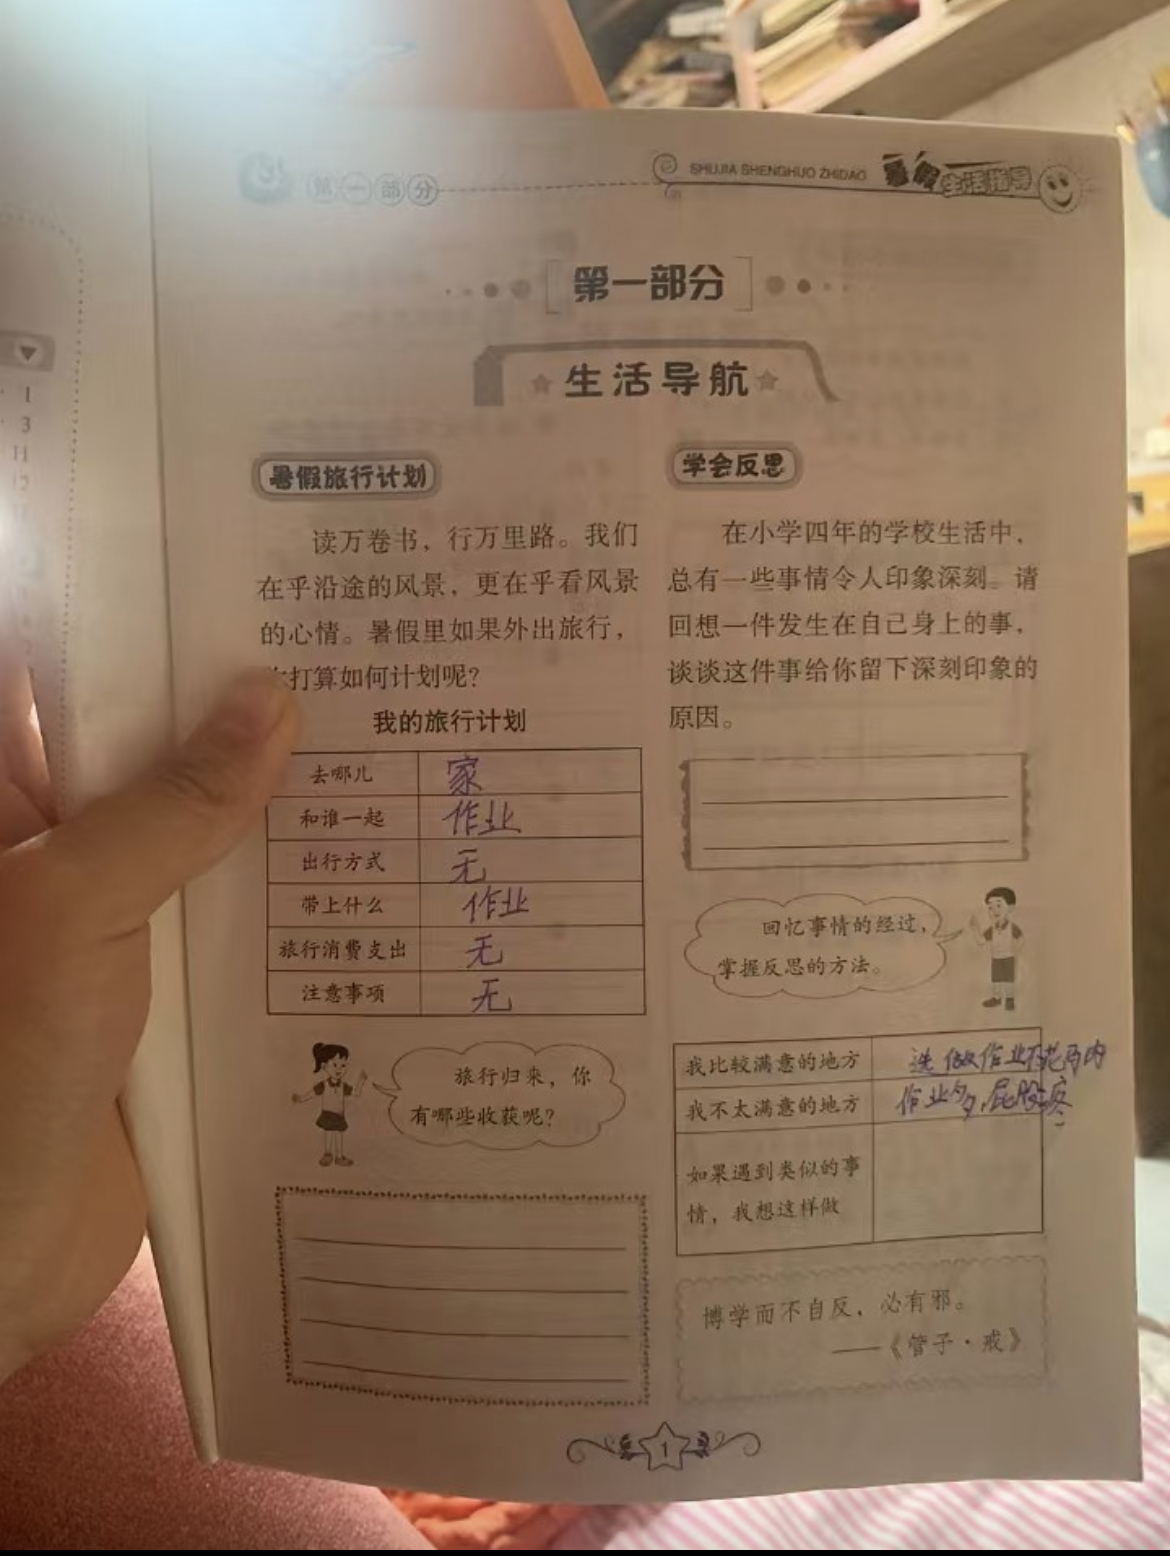 第一部分
SHUJIA SHENGHUO ZHIDAO 暑假生活指导
第一部分
生活导航
1
3
11
暑假旅行计划
读万卷书，行万里路。我们
在乎沿途的风景，更在乎看风景
的心情。暑假里如果外出旅行，
打算如何计划呢？
我的旅行计划
去哪儿 家
和谁一起 作业
出行方式 无
带上什么 作业
旅行消费支出 无
注意事项 无
旅行归来，你
有哪些收获呢？
学会反思
在小学四年的学校生活中，
总有一些事情令人印象深刻。请
回想一件发生在自己身上的事，
谈谈这件事给你留下深刻印象的
原因。
回忆事情的经过，
掌握反思的方法。
我比较满意的地方 做作业不
我不太满意的地方 作业多，屁股疼
如果遇到类似的事
情，我想这样做
博学而不自反，必有邪。
——《管子·戒》
1